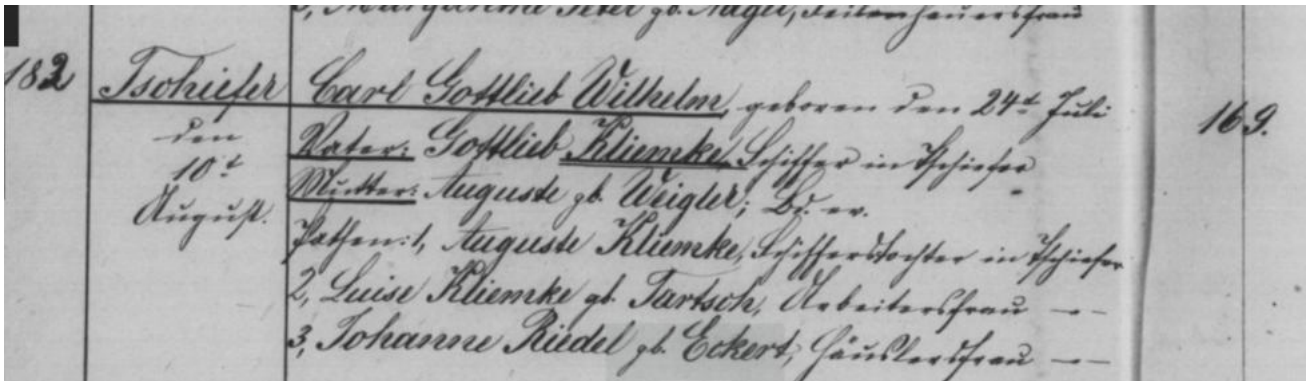 3, Margaretha Peter gb. Nagel, Feilenhauersfrau
182 Tschiefer Carl Gottlieb Wilhelm, geboren den 24t Juli 169.
den Vater: Gottlieb Kliemke, Schiffer in Tschiefer
10t Mutter: Auguste gb. Weigler; Bd. ev.
August. Pathen: 1, Auguste Kliemke, Schifferstochter in Tschiefer
2, Luise Kliemke gb. Tartsch, Arbeitersfrau —"—
3, Johanne Riedel gb. Eckert, Häuslersfrau —"—